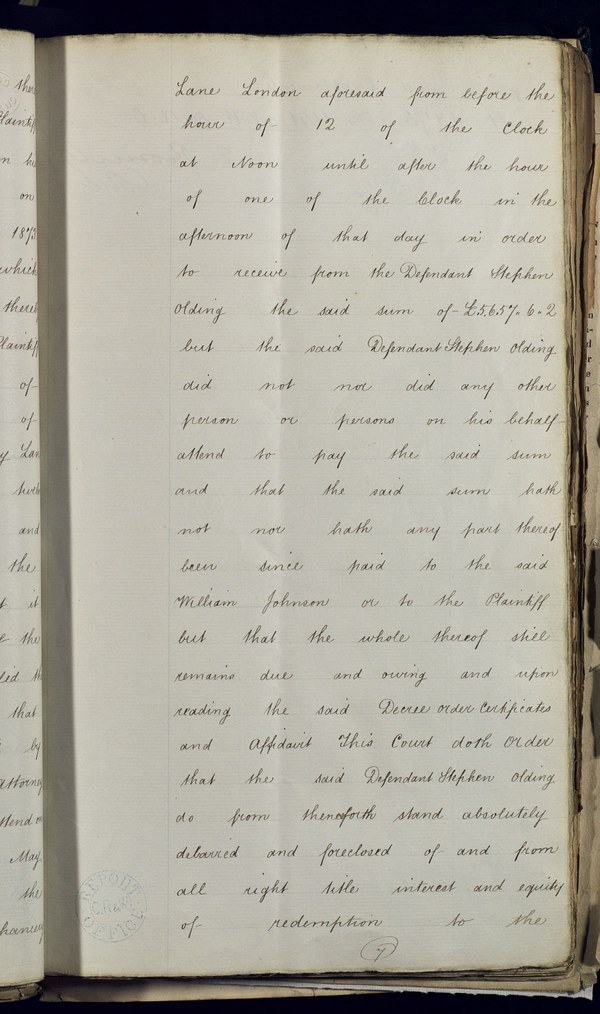 Lane London aforesaid from before the
hour of 12 of the Clock
at Noon until after the hour
of one of the Clock in the
afternoon of that day in order
to receive from the Defendant Stephen
Olding the said sum of £5,657.. 6.. 2
but the said Defendant Stephen Olding
did not nor did any other
person or persons on his behalf
attend to pay the said sum
and that the said sum hath
not nor hath any part thereof
been since paid to the said
William Johnson or to the Plaintiff
but that the whole thereof still
remains due and owing and upon
reading the said Decree order Certificates
and Affidavit This Court doth Order
that the said Defendant Stephen Olding
do from thenceforth stand absolutely
debarred and foreclosed of and from
all right title interest and equity
of redemption to the
7
REPORT
OFFICE
Plaintiff
on
1873
which
Plaintiff
of
of
and
the
that
by
attorney
May
the